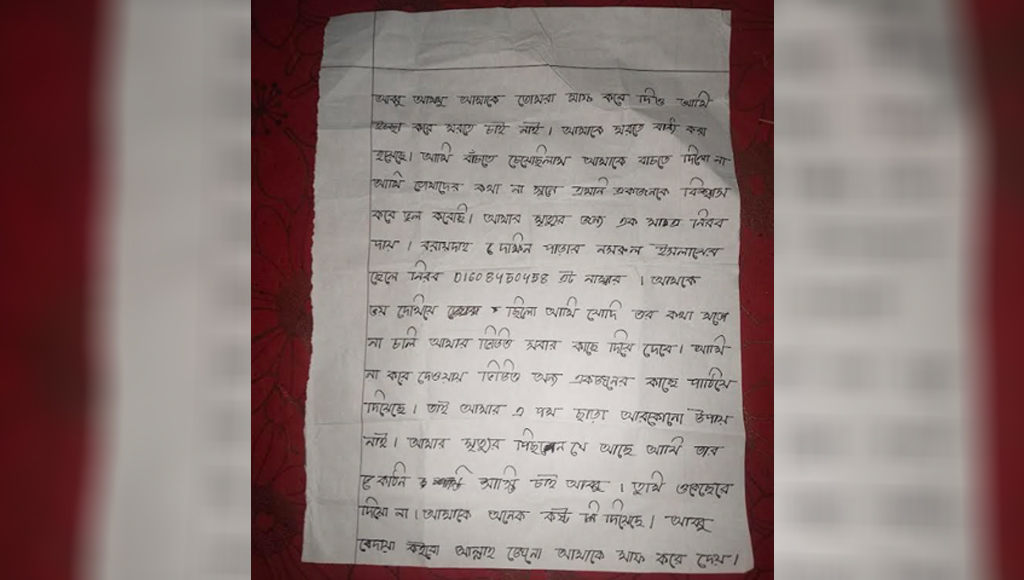 আব্বু আম্মু আমাকে তোমরা মাফ করে দিও আমি
ইচ্ছা করে মরতে চাই নাই। আমাকে মরতে বাধ্য করা
হয়েছে। আমি বাঁচতে চেয়েছিলাম আমাকে বাচতে দিলো না
আমি তোমাদের কথা না শুনে এমনি একজনকে বিশ্বাস
করে ভুল করেছি। আমার মৃত্যুর জন্য এক মাত্র নিরব
দায়। দক্ষিন পাড়ার নজরুল ইসলামের
ছেলে নিরব 01608450458 এই নাম্বার। আমাকে
ভয় দেখিয়ে ছিলো আমি যোদি তর কথা মতো
না চলি আমার ভিডিও সবার কাছে দিয়ে দেবে। আমি
না করে দেওয়ায় ভিডিও অন্য একজনের কাছে পাঠিয়ে
দিয়েছে। তাই আমার এ পথ ছাড়া আরকোনো উপায়
নাই। আমার মৃত্যুর পিছনে যে আছে আমি তার
কঠিন শাস্তি চাই আব্বু। তুমি ওকেছেরে
দিয়ো না। আমাকে অনেক কষ্ট দিয়েছে। আব্বু
দোয়া কইরো আল্লাহ যেনো আমাকে মাফ করে দেয়।